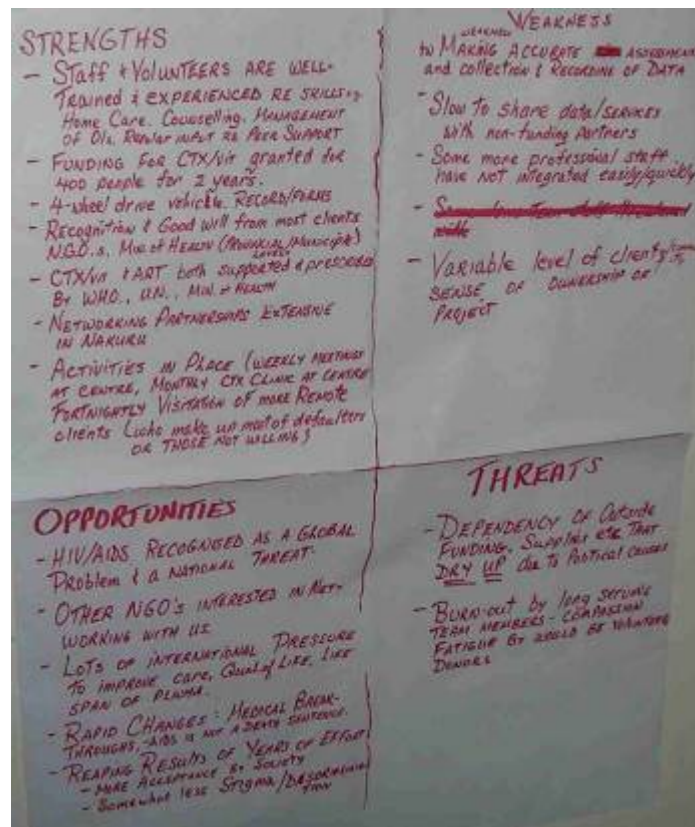 STRENGTHS
- STAFF & VOLUNTEERS ARE WELL-
TRAINED & EXPERIENCED RE SKILLS
Home Care. Counselling. MANAGEMENT
OF OIs. Regular input re Peer Support
- FUNDING FOR CTX/vit granted for
400 people for 2 years.
- 4-wheel drive vehicle. RECORD/FORMS
- Recognition & Good will from most clients
N.G.O.s, Min of HEALTH (PROVINCIAL/Municiple)
LEVELS
- CTX/vit & ART both supported & prescribed
By WHO., U.N., Min. of HEALTH
- NETWORKING PARTNERSHIPS EXTENSIVE
IN NAKURU
- ACTIVITIES IN PLACE (WEEKLY MEETINGS
AT CENTRE, MONTHLY CTX CLINIC AT CENTRE
FORTNIGHTLY VISITATION OF MORE REMOTE
clients (who make up most of defaulters
OR THOSE NOT WILLING)
WEAKNESS
to MAKING ACCURATE ASSESSMENT
and collection & RECORDING OF DATA
- Slow to share data/SERVICES
with non-funding partners
- Some more professional staff
have not integrated easily/quickly
- Variable level of clients
SENSE OF OWNERSHIP OF
PROJECT
OPPORTUNITIES
- HIV/AIDS RECOGNISED AS A GLOBAL
Problem & A NATIONAL THREAT.
- OTHER NGO'S INTERESTED IN NET-
WORKING WITH US.
- LOTS OF INTERNATIONAL PRESSURE
TO improve care, Qual. of LIFE, LIFE
SPAN OF PLWHA.
- RAPID CHANGES: MEDICAL BREAK-
THROUGHS, -AIDS IS NOT A DEATH SENTENCE.
- REAPING RESULTS OF YEARS OF EFFORT
- MORE ACCEPTANCE BY SOCIETY
- Somewhat less Stigma/DISCRIMINA
TION
THREATS
- DEPENDENCY OF Outside
FUNDING. Supplies etc THAT
DRY UP due TO Political causes
- BURN-OUT by long serving
TEAM MEMBERS - COMPASSION
FATIGUE BY WOULD BE VOLUNTEERS
DONORS